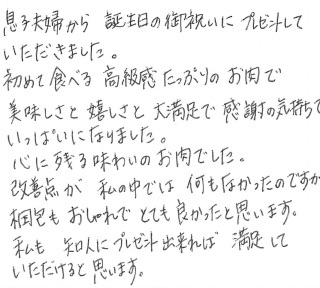 息子夫婦から 誕生日の御祝いに プレゼントして
いただきました。
初めて食べる 高級感たっぷりの お肉で
美味しさと 嬉しさと 大満足で 感謝の気持ちで
いっぱいになりました。
心に残る味わいのお肉でした。
改善点が 私の中では 何もなかったのですが
梱包も おしゃれで とても良かったと思います。
私も 知人にプレゼント出来れば 満足して
いただけると思います。